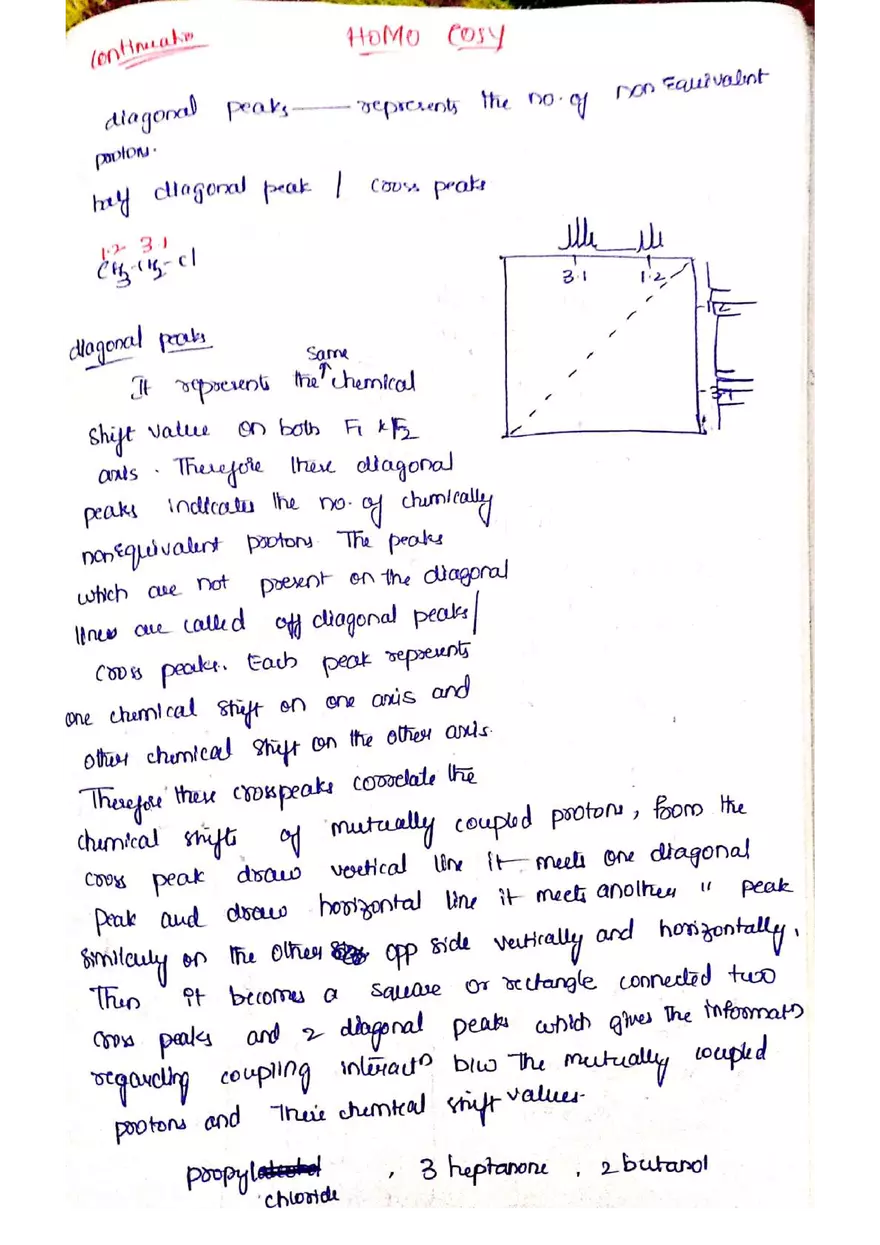 Continuation
HOMO COSY
diagonal peaks —— represents the no. of non Equivalent
protons.
half diagonal peak / cross peaks
1.2 3.1
CH3-CH2-Cl
3.1 1.2
1.2
3.1
diagonal peaks
same
It represents the ↑ chemical
shift value on both F1 & F2
axis. Therefore these diagonal
peaks indicates the no. of chemically
nonEquivalent protons. The peaks
which are not present on the diagonal
lines are called off diagonal peaks/
cross peaks. Each peak represents
one chemical shift on one axis and
other chemical shift on the other axis.
Therefore these crosspeaks correlate the
chemical shifts of mutually coupled protons, from the
cross peak draw vertical line it meets one diagonal
peak and draw horizontal line it meets another " peak
similarly on the other opp side vertically and horizontally.
Then it becomes a square or rectangle connected two
cross peaks and 2 diagonal peaks which gives the informatn
regarding coupling interactn b/w the mutually coupled
protons and their chemical shift values.
propyl , 3 heptanone , 2 butanol
chloride